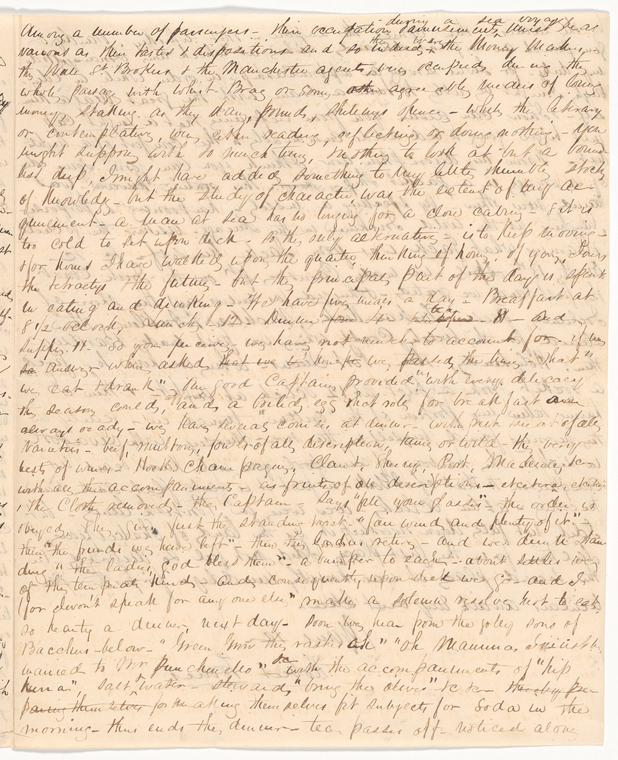 Among a number of passengers - their occupations & amusements during a sea voyage must be as
various as their tastes & dispositions and so indeed - the Money Makers,
the State St Brokers & the Manchester agents, were occupied during the
whole passage with Whist Brag or some other agreeable means of
money, staking as they say, pounds, shillings & pence - while the literary
or contemplative were either reading, reflecting or doing nothing -
might suppose with so much time, nothing to look at but a bound
less deep, I might have added something to my little humble stock
of Knowledge - but the study of character was the extent of my ac
quirement - a man at sea has no longing for a close cabin - & it is
too cold to set upon deck - so the only alternative - is to keep moving -
& for hours I have walked upon the quarter, thinking of home, of you,
the future - but the principal part of the day is spent
in eating and drinking - We have five meals a day - Breakfast at
8 1/2 oclock, Lunch 12 - Dinner 4 - tea 8 - and
supper 11. So you perceive we have not much to account for - if
answer when asked how we passed the time, "that
we eat & drank" Our good Captain provided "with every delicacy
the season could," and a boiled egg & hot rolls for breakfast
always ready - we have courses at dinner - with meat of all
Varieties - beef, mutton, fowls of all description, tame or wild - the very
best of wines - Hock, Champagne, Claret, Sherry, Port, Madeira, &c -
with all the accompaniments - as fruits of all descriptions - etcetera,
& the Cloth removed - the Captain says "fill your glasses" - the order is
obeyed - He gives just the standing toast "fair wind and plenty of it" -
then "the friends we have left" - then the ladies retire - and we drink stan
ding "the ladies, God bless them" - a bumper to each - about
of the - and consequently upon deck we go - and I
(for I won't speak for any one else) make a solemn resolve not to eat
so hearty a dinner, next day - soon we hear from the jolly sons of
Bacchus - below - "Green Grow the rashes oh" "Oh, Mamma
married to Mr Punchinello" &c with the accompaniments of "hip
hurra", salt water - stewards "bring the olives" &c &c -
for making themselves fit subjects for Soda in the
morning - thus ends the dinner - tea passes off - noticed along